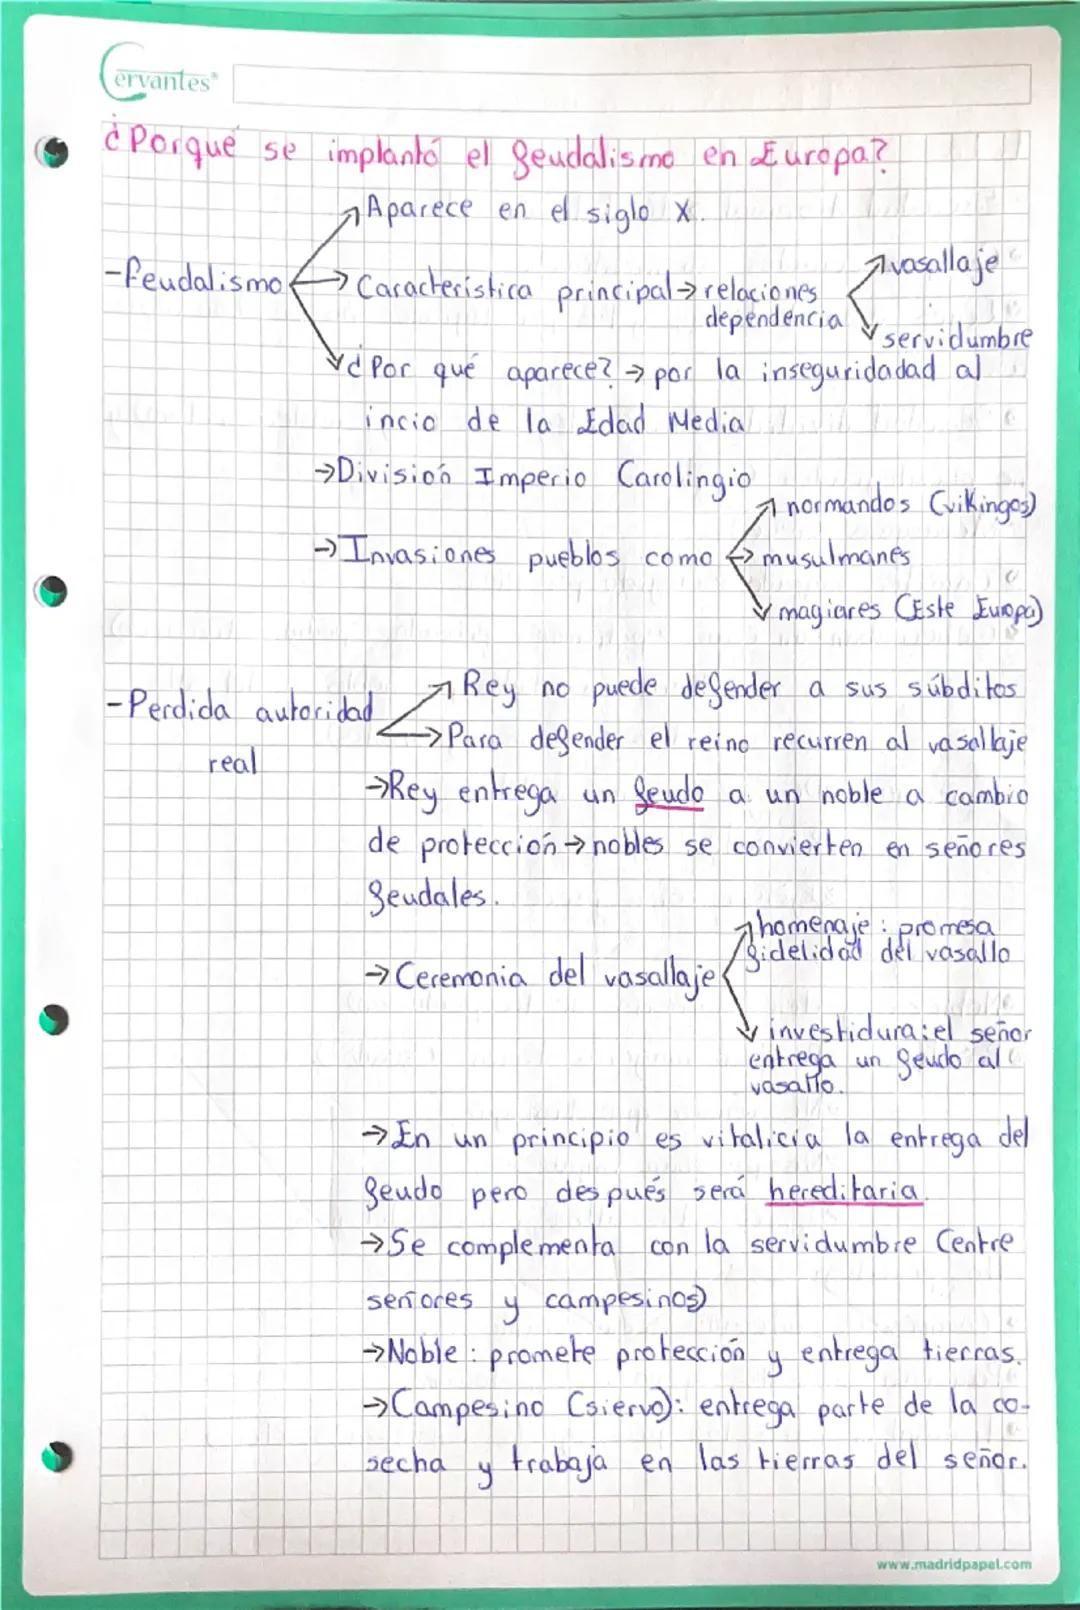 Cervantes®
¿Porqué se implantó el feudalismo en Europa?
Aparece en el siglo X.
-feudalismo
Característica principal→relaciones dependencia
vasallaje
servidumbre
¿Por qué aparece?→por la inseguridadad al
incio de la Edad Media
→División Imperio Carolingio
→Invasiones pueblos como
normandos (vikingos)
musulmanes
magiares (Este Europa)
-Perdida autoridad real
Rey no puede defender a sus súbditos
→Para defender el reino recurren al vasallaje
→Rey entrega un feudo a un noble a cambio
de protección→nobles se convierten en señores
feudales.
→Ceremonia del vasallaje
homenaje: promesa
fidelidad del vasallo
investidura: el señor
entrega un feudo al
vasallo.
→En un principio es vitalicia la entrega del
feudo pero después será hereditaria.
→Se complementa con la servidumbre (entre
señores y campesinos)
→Noble: promete protección y entrega tierras.
→Campesino (siervo): entrega parte de la co-
secha y trabaja en las tierras del señor.
www.madridpapel.com